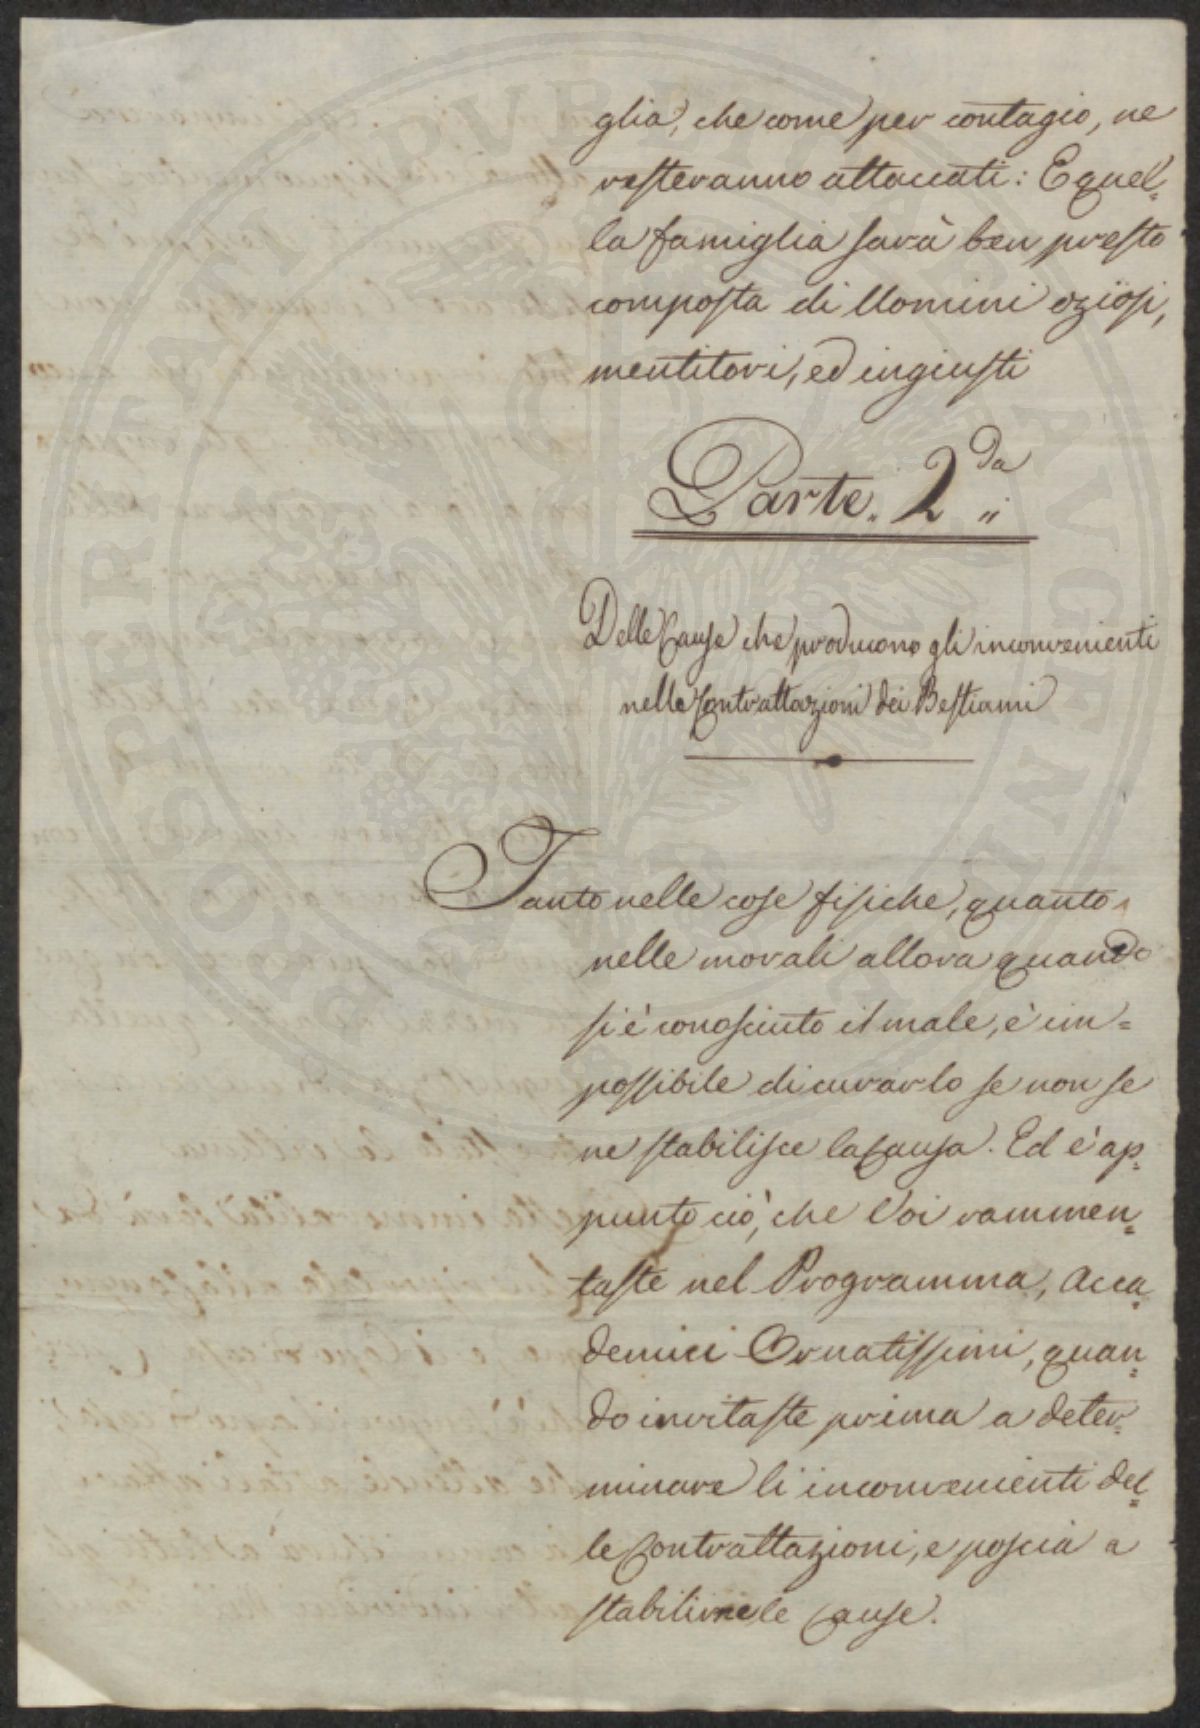 glia, che come per contagio, ne
resteranno attaccati: E quel=
la famiglia sarà ben presto
composta di Uomini oziosi,
mentitori, ed ingiusti
Parte. 2da
Delle Cause che producono gli inconvenienti
nelle Contrattazioni dei Bestiami
Tanto nelle cose fisiche, quanto
nelle morali allora quando
si è conosciuto il male, è im=
possibile di curarlo se non se
ne stabilisce la Causa. Ed è ap=
punto ciò, che Voi rammen=
taste nel Programma, Acca=
demici Ornatissimi, quan=
do invitaste prima a deter=
minare li inconvenienti del=
le Contrattazioni, e poscia a
stabilirne le Cause.
PROSPERITATI PUBLICAE AUGENDAE